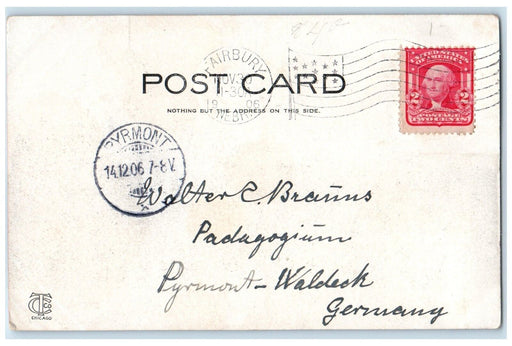 FAIRBURY
NOV 30
1906
NEBR.
UNITED STATES
OF AMERICA
2 2
POSTAGE
TWO CENTS
POST CARD
NOTHING BUT THE ADDRESS ON THIS SIDE.
PYRMONT
14.12.06 7-8 V.
Walter C. Brauns
Padagogium
Pyrmont-Waldeck
Germany
CHICAGO